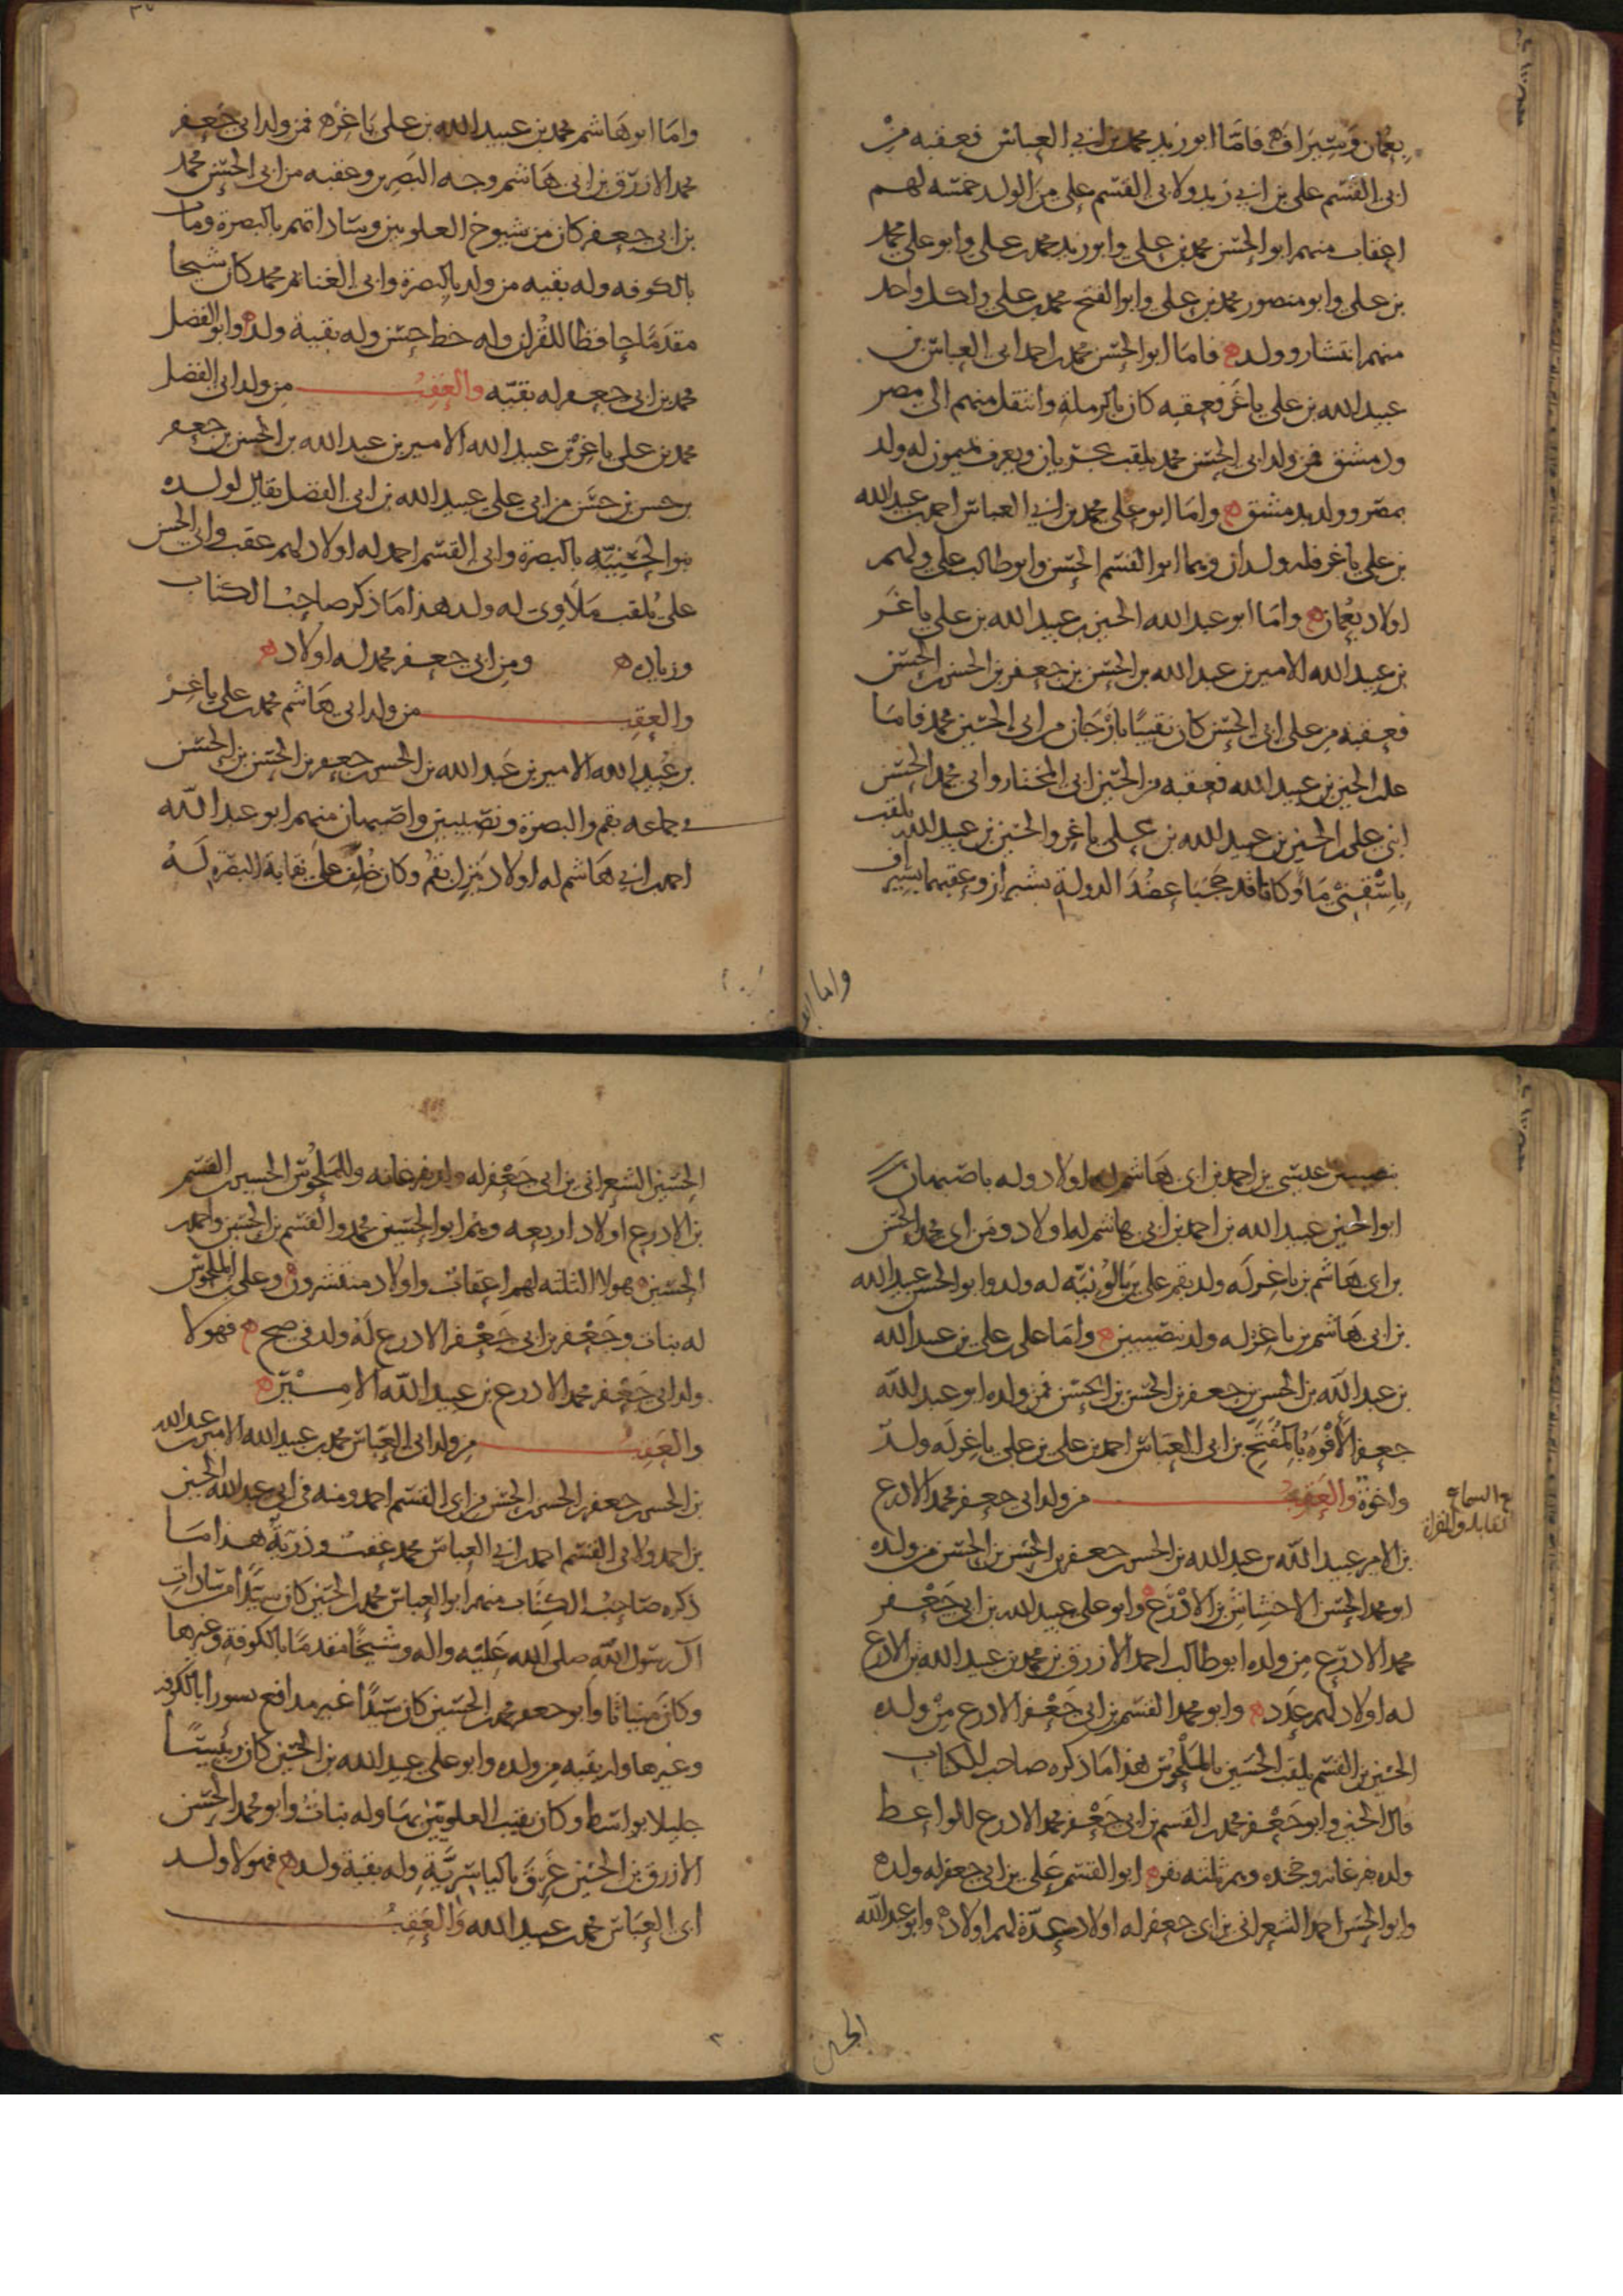 بعمان وسيراف ه فاما ابو زيد محمد بن ابي العباس فعقبه من
ابي القسم علي بن ابي زيد ولابي القسم علي من الولد خمسه لهم
اعقاب منهم ابو الحسن محمد بن علي وابو زيد محمد بن علي وابو علي محمد
بن علي وابو منصور محمد بن علي وابو الفتح محمد بن علي ولكل واحد
منهم انتشار وولد ه فاما ابو الحسن محمد بن احمد ابي العباس بن
عبيد الله بن علي باغر فعقبه كان بالرملة وانتقل منهم الى مصر
ودمشق فمن ولد ابي الحسن محمد يلقب ويعرف بميمون له ولد
بمصر وولد بدمشق ه واما ابو علي محمد بن ابي العباس احمد بن عبيد الله
بن علي باغر فله ولدان وهما ابو القسم الحسن وابو طالب علي ولهم
اولاد بعمان ه واما ابو عبد الله الحسين بن عبيد الله بن علي باغر
بن عبيد الله الامير بن عبد الله بن الحسن بن جعفر بن الحسن بن الحسن
فعقبه من علي ابي الحسن كان نقيبا بارجان من ابي الحسين محمد فاما
علي بن الحسين بن عبيد الله فعقبه من الحسين ابي المختار وابي محمد الحسن
ابني علي بن الحسين بن عبيد الله بن علي باغر والحسين بن عبيد الله يلقب
وكانا قد حجبا عضد الدولة بشيراز وعقبهما بسيراف
واما ابو
واما ابو هاشم محمد بن عبيد الله بن علي باغر ه فمن ولد ابي جعفر
محمد الازرق بن ابي هاشم وجه البصرين وعقبه من ابي الحسن محمد
بن ابي جعفر كان من شيوخ العلويين وساداتهم بالبصرة ومات
بالكوفه وله بقيه من ولد بالبصرة وابي الغنائم محمد كان شيخا
مقدما حافظا للقران وله خط حسن وله بقية ولد ه وابو الفضل
محمد بن ابي جعفر له بقيه والعقب من ولد ابي الفضل
محمد بن علي باغر بن عبيد الله الامير بن عبد الله بن الحسن بن جعفر
بن حسن بن حسن من ابي علي عبيد الله بن ابي الفضل يقال لولده
بنو الحسينيه بالبصرة وابي القسم احمد له اولاد لهم عقب وابي الحسن
علي يلقب ملاوي له ولد هذا ما ذكر صاحب الكتاب
وزياده ومن ابي جعفر محمد له اولاد ه
والعقب من ولد ابي هاشم محمد بن علي باغر
بن عبيد الله الامير بن عبد الله بن الحسن بن جعفر بن الحسن بن الحسن
في جماعه بقم والبصرة ونصيبين واصبهان منهم ابو عبد الله
احمد بن ابي هاشم له اولاد نزل بقم وكان خلف على نقابة البصرة له
بنصيبين عيسى بن احمد بن ابي هاشم له اولاد وله باصبهان
ابو الحسين عبيد الله بن احمد بن ابي هاشم له اولاد ومن ابي محمد الحسن
بن ابي هاشم بن باغر له ولد بقم علي له ولد وابو الحسن عبيد الله
بن ابي هاشم بن باغر له ولد بنصيبين ه واما علي بن علي بن عبيد الله
بن عبد الله بن الحسن بن جعفر بن الحسن بن الحسن فمن ولده ابو عبد الله
جعفر الافوه بن ابي العباس احمد بن علي بن علي باغر له ولد
واخوة والعقب من ولد ابي جعفر محمد الادرع
بلغ السماع
مقابلة والقراة
بن الامير عبيد الله بن عبد الله بن الحسن بن جعفر بن الحسن بن الحسن من ولده
ابو محمد الحسن بن الادرع وابو علي عبيد الله بن ابي جعفر
محمد الادرع من ولده ابو طالب احمد الازرق بن محمد بن عبيد الله بن الادرع
له اولاد لهم عدد ه وابو محمد القسم بن ابي جعفر الادرع من ولده
الحسين بن القسم يلقب الحسين بالملحوس هذا ما ذكره صاحب الكتاب
قال الحسين وابو جعفر محمد بن القسم بن ابي جعفر محمد الادرع للواعظ
ولد بفرغانه وخجنده وهم ثلثه نفر ه ابو القسم علي بن ابي جعفر له ولد ه
وابو الحسن احمد الشعراني بن ابي جعفر له اولاد عدة لهم اولاد ه وابو عبد الله
الحسين
الحسين الشعراني بن ابي جعفر له ولد بفرغانه وللملحوس الحسين بن القسم
بن الادرع اولاد اربعه وهم ابو الحسين محمد والقسم بن الحسين واحمد بن
الحسين ه هولا الثلثه لهم اعقاب واولاد منتشرون ه وعلي بن الملحوس
له بنات وجعفر بن ابي جعفر الادرع له ولد في صح ه فهولا
ولد ابي جعفر محمد الادرع بن عبيد الله الامير ه
والعقب من ولد ابي العباس محمد بن عبيد الله الامير بن عبد الله
بن الحسن بن جعفر بن الحسن بن الحسن من ابي القسم احمد ومنه في ابي عبد الله الحسين
بن احمد ولابي القسم احمد بن ابي العباس محمد عقب وذرية هذا ما
ذكره صاحب الكتاب منهم ابو العباس محمد بن الحسين كان سيدا من سادات
آل رسول الله صلى الله عليه واله وشيخا مقدما بالكوفة وغيرها
وكان مينائا وابو جعفر محمد بن الحسين كان سيدا غير مدافع بسورا بالكوفه
وغيرها وله بقيه من ولده وابو علي عبيد الله بن الحسين كان رئيسا
جليلا بواسط وكان نقيب العلويين بها وله بنات وابو محمد الحسن
الازرق بن الحسين غرق بالياسرية وله بقية ولد ه فهولا ولد
ابي العباس محمد بن عبيد الله والعقب